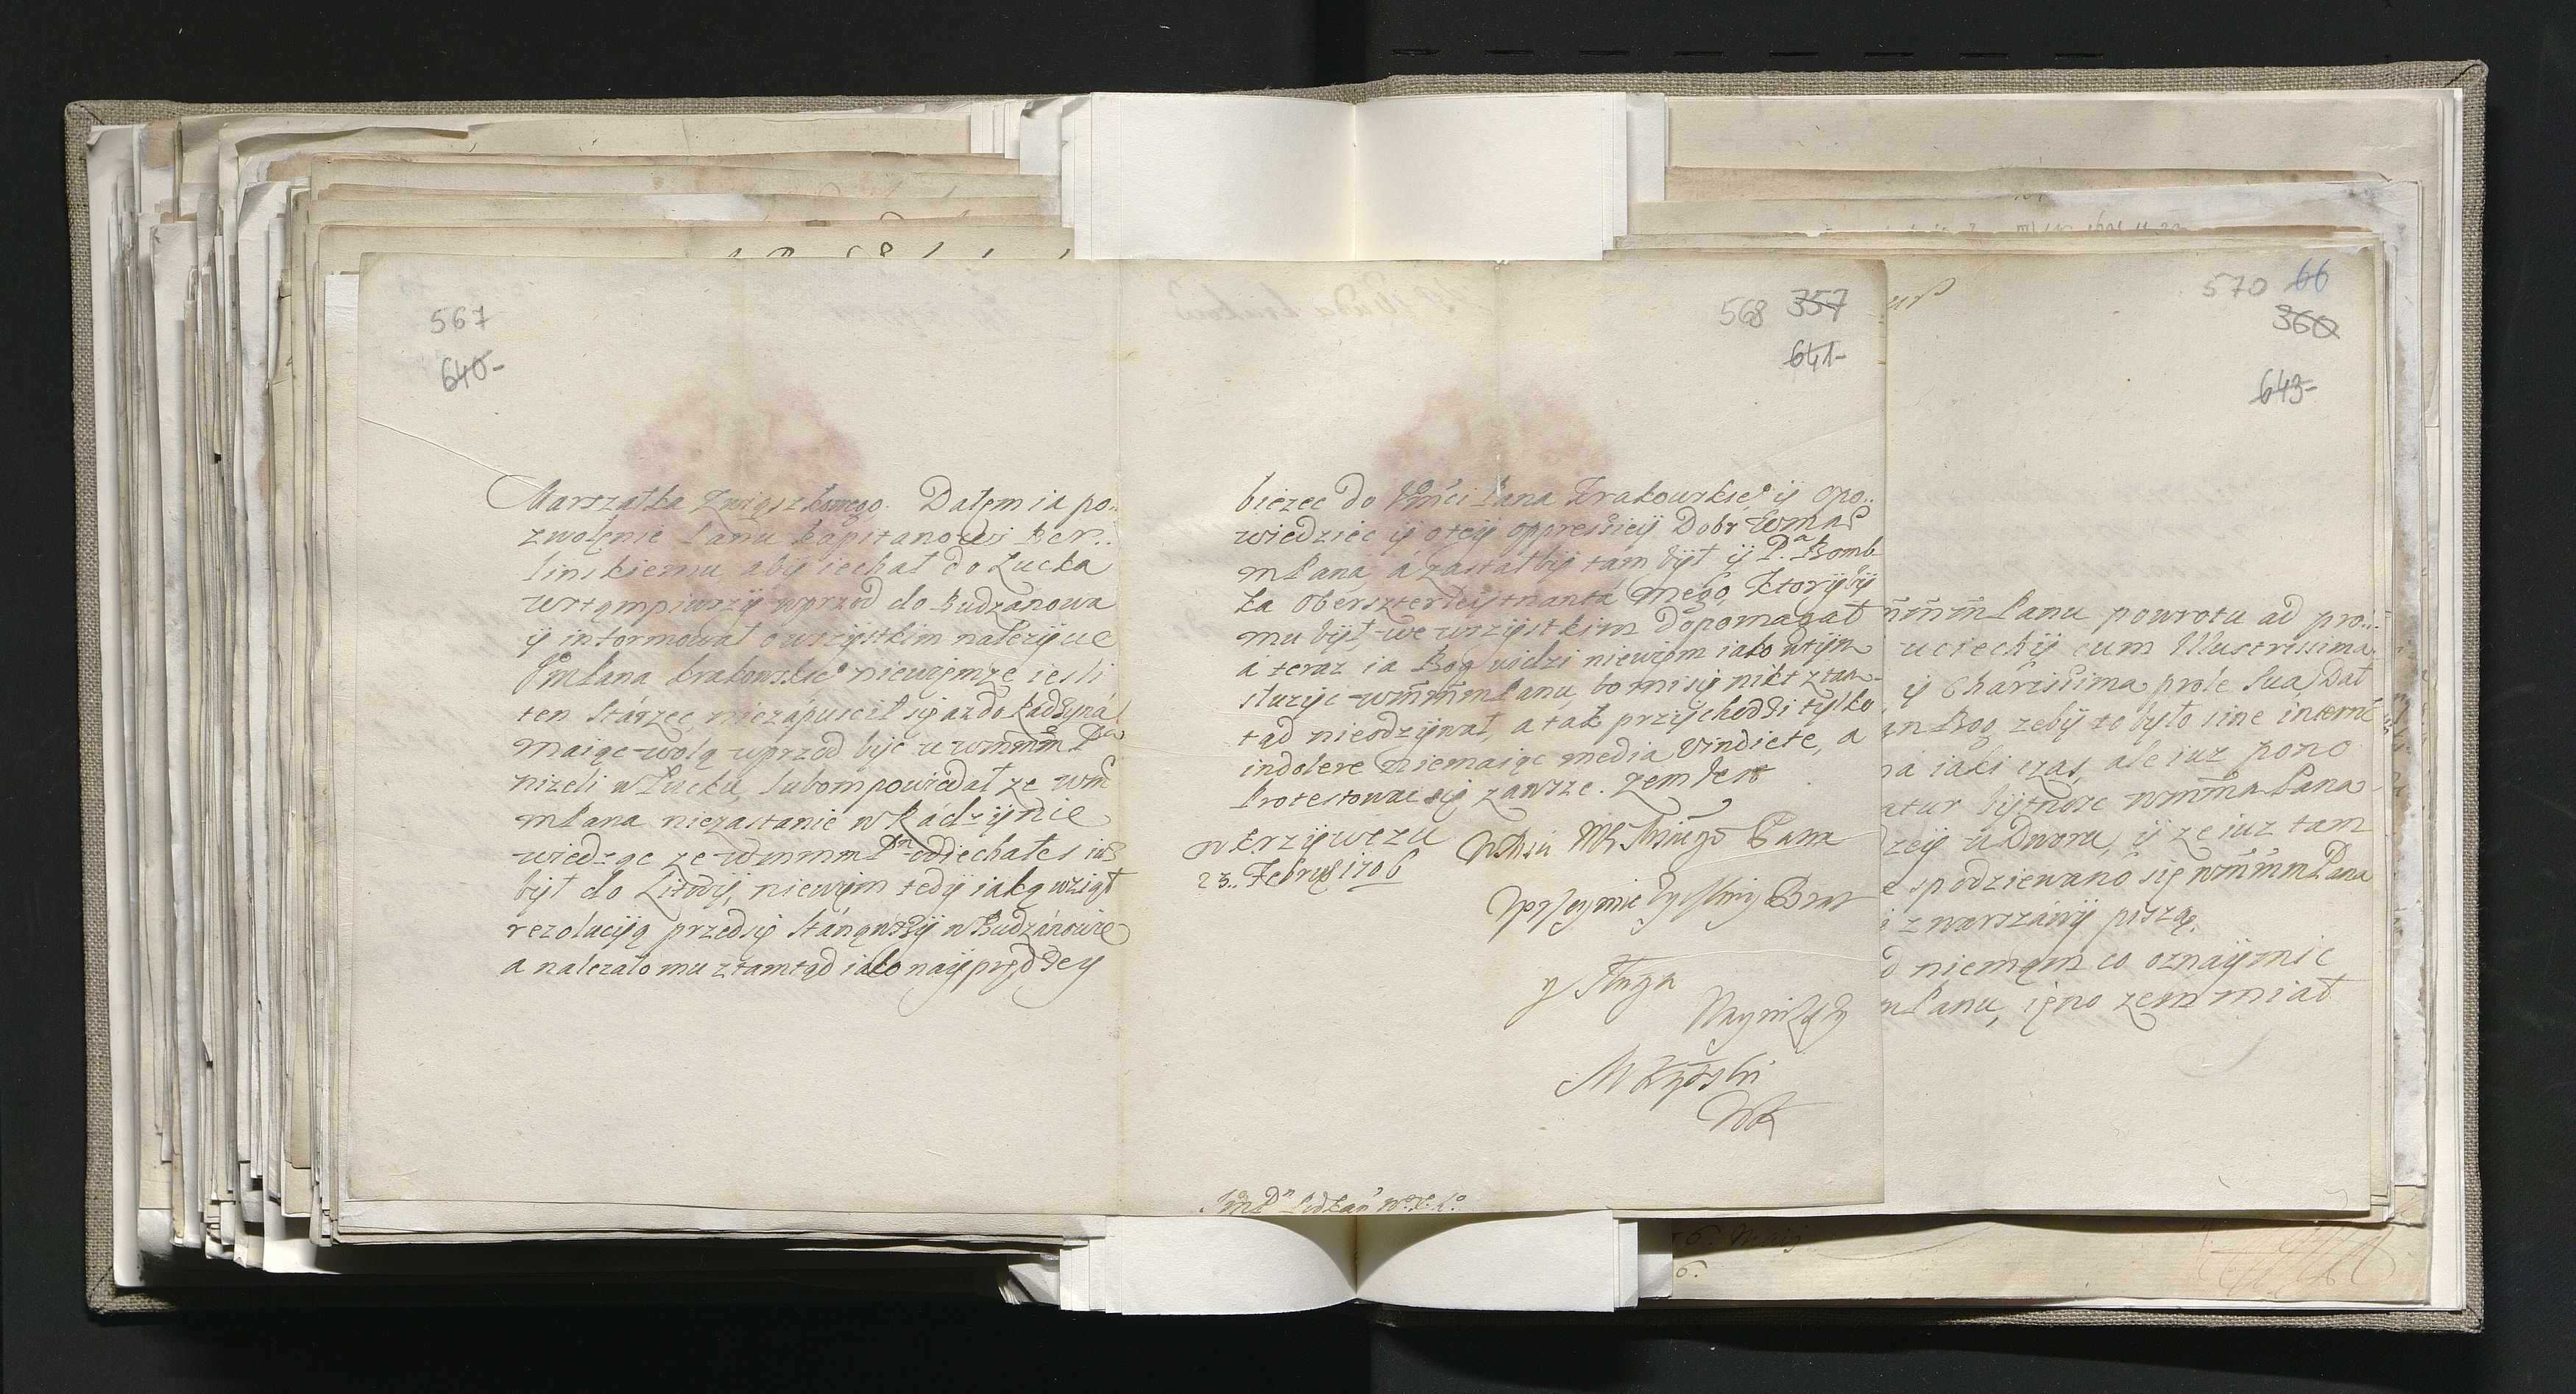 567
640-
Marszałka Zwiąszkowego. Dałem ia po..
zwolenie Panu Kapitanowi Ber..
linskiemu, aby iechał do Łucka
wstąmpiwszÿ wprzod do Budzanowa
ÿ informował o wszÿstkim należÿcie
JmPana Krakowskieo niewiem ze iesli
ten Stárzec niezápuscił się az do Kadzÿná
maiąc wolą wprzod bÿc u wmmm Pa
nizeli w Łucku, lubom powiedał ze wm
mPana niezastanie w Rádzÿnie
wiedząc ze wmmm Pn odiechałes iuz
bÿł do Litwÿ, niewiem tedÿ iaką wziął
rezolucÿą przedsię Stánąwszÿ w Budzánowie
a nalezało mu ztamtąd iako naÿprędzey
568 357
641-
biezec do Jmci Pana Krakowskieo ÿ opo..
wiedziec ÿ o teÿ oppressieÿ Dobr wma
mPana, á zastałbÿ tám bÿł ÿ P.a Bomb
ka Obersterleÿtnantá mego, ktorÿbÿ
mu bÿł we wszÿstkim dopomagał
á teraz ia Bog widzi niewiem iako wtÿm
słuzÿc wmmmPanu, bo mi się nikt ztam
tąd nieodzÿwał, a tak przÿchodzi tylko
indolere niemaiąc media vindictæ, a
Protestowac się zawsze. zem iest
w Krzÿwczu
23.. Febru 1706
Pana
Uprzeymie Brat
y Sługa
Nayniższy
JmP
570 66
360
643-
mmmPanu powrotu ad pro..
uciechÿ cum Illustrissima
ÿ Charissima prole Sua, Dał
an Bog zebÿ to bÿło sine interm
na iaki czas, ale iuz pono
atur bÿtnosc wmmaPana
zeÿ u Dworu, ÿ ze iuz tam
e spodziewano się wmmmPana
i z warszáwÿ piszą.
d niemąm co oznaÿmic
mPanu, ięno zem miał